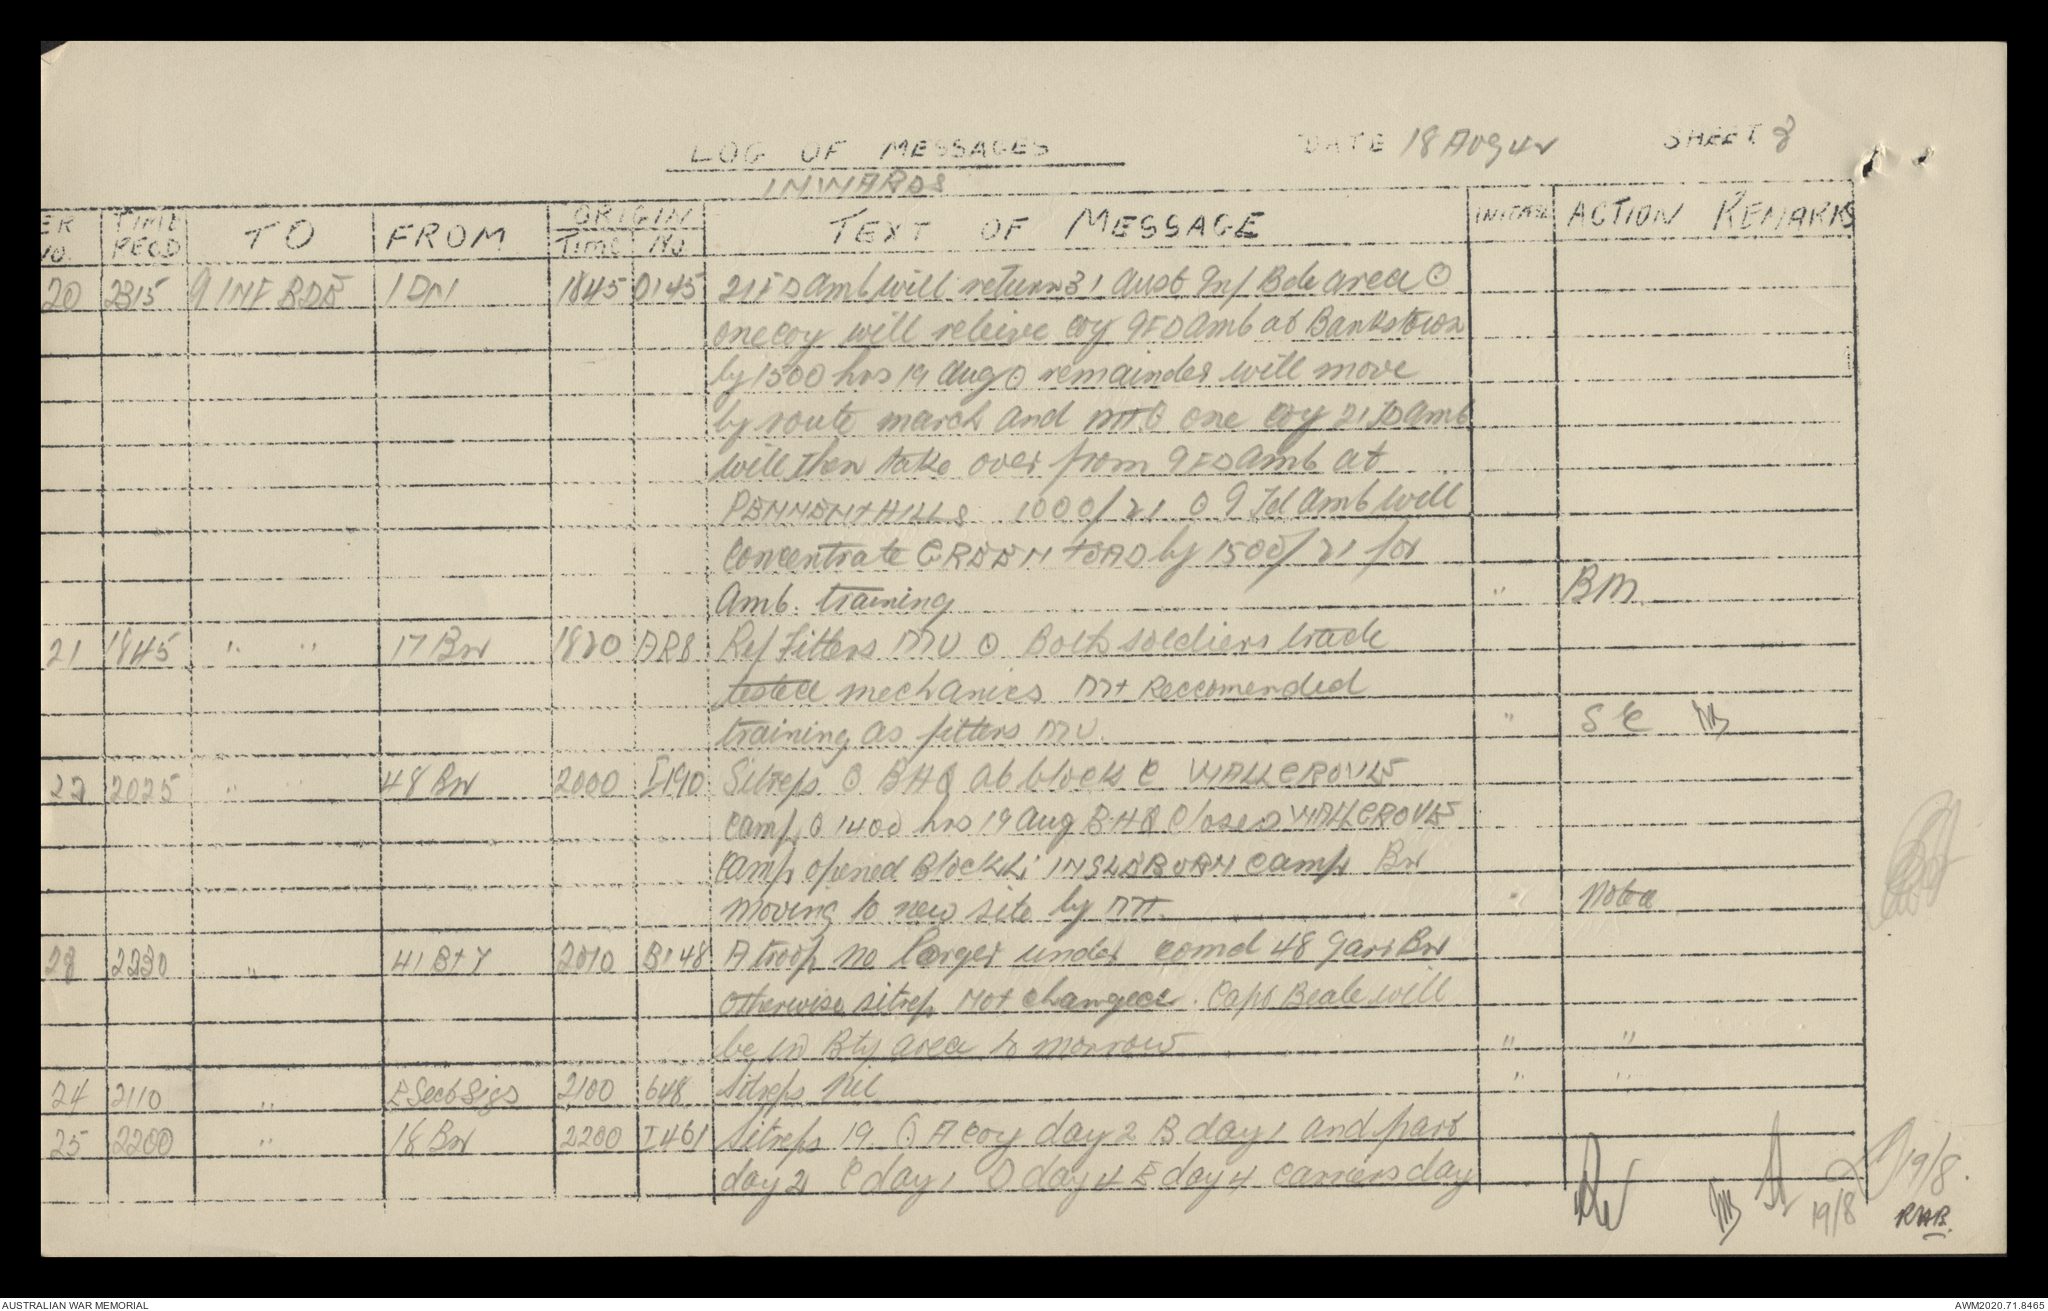 LOG OF MESSAGES DATE 18 Aug 42 SHEET 3
INWARDS
ER NO. TIME RECD TO FROM ORIGIN TIME NO. TEXT OF MESSAGE INITIAL ACTION REMARKS
20 2315 9 INF BDE 1 DIV 1845 O145 21 FD Amb will return 31 Aust Inf Bde area ⊙
one coy will releive coy 9 FD Amb at Bankstown
by 1500 hrs 19 Aug ⊙ remainder will move
by route march and MT ⊙ one coy 21 FD Amb
will then take over from 9 FD Amb at
PENNENT HILLS 1000/21 ⊙ 9 Fd Amb will
concentrate GREEN ROAD by 1500/21 for
Amb. training " BM
21 1845 " " 17 Bn 1820 AR8 Ref Fitters MV ⊙ Both soldiers trade
tested mechanics MT Reccomended
training as fitters MV. " S C
22 2025 " 48 Bn 2000 I190 Sitreps ⊙ BHQ at block C WALLGROVE
Camp ⊙ 1400 hrs 19 Aug BHQ closes WALLGROVE
Camp opened Block L INGLEBURN Camp Bn
moving to new site by MT. " Noted
23 2230 " 41 Bty 2010 B148 A troop no longer under comd 48 Gar Bn
otherwise sitrep not changed. Capt Beale will
be in Bty area to morrow " "
24 2110 " E Sect Sigs 2100 648 Sitreps Nil " "
25 2200 " 18 Bn 2200 I461 Sitreps 19 ⊙ A coy day 2 B day 1 and part
day 2 C day 1 D day 4 E day 4 carriers day
19/8 19/8.
RWB.
AUSTRALIAN WAR MEMORIAL AWM2020.71.8465